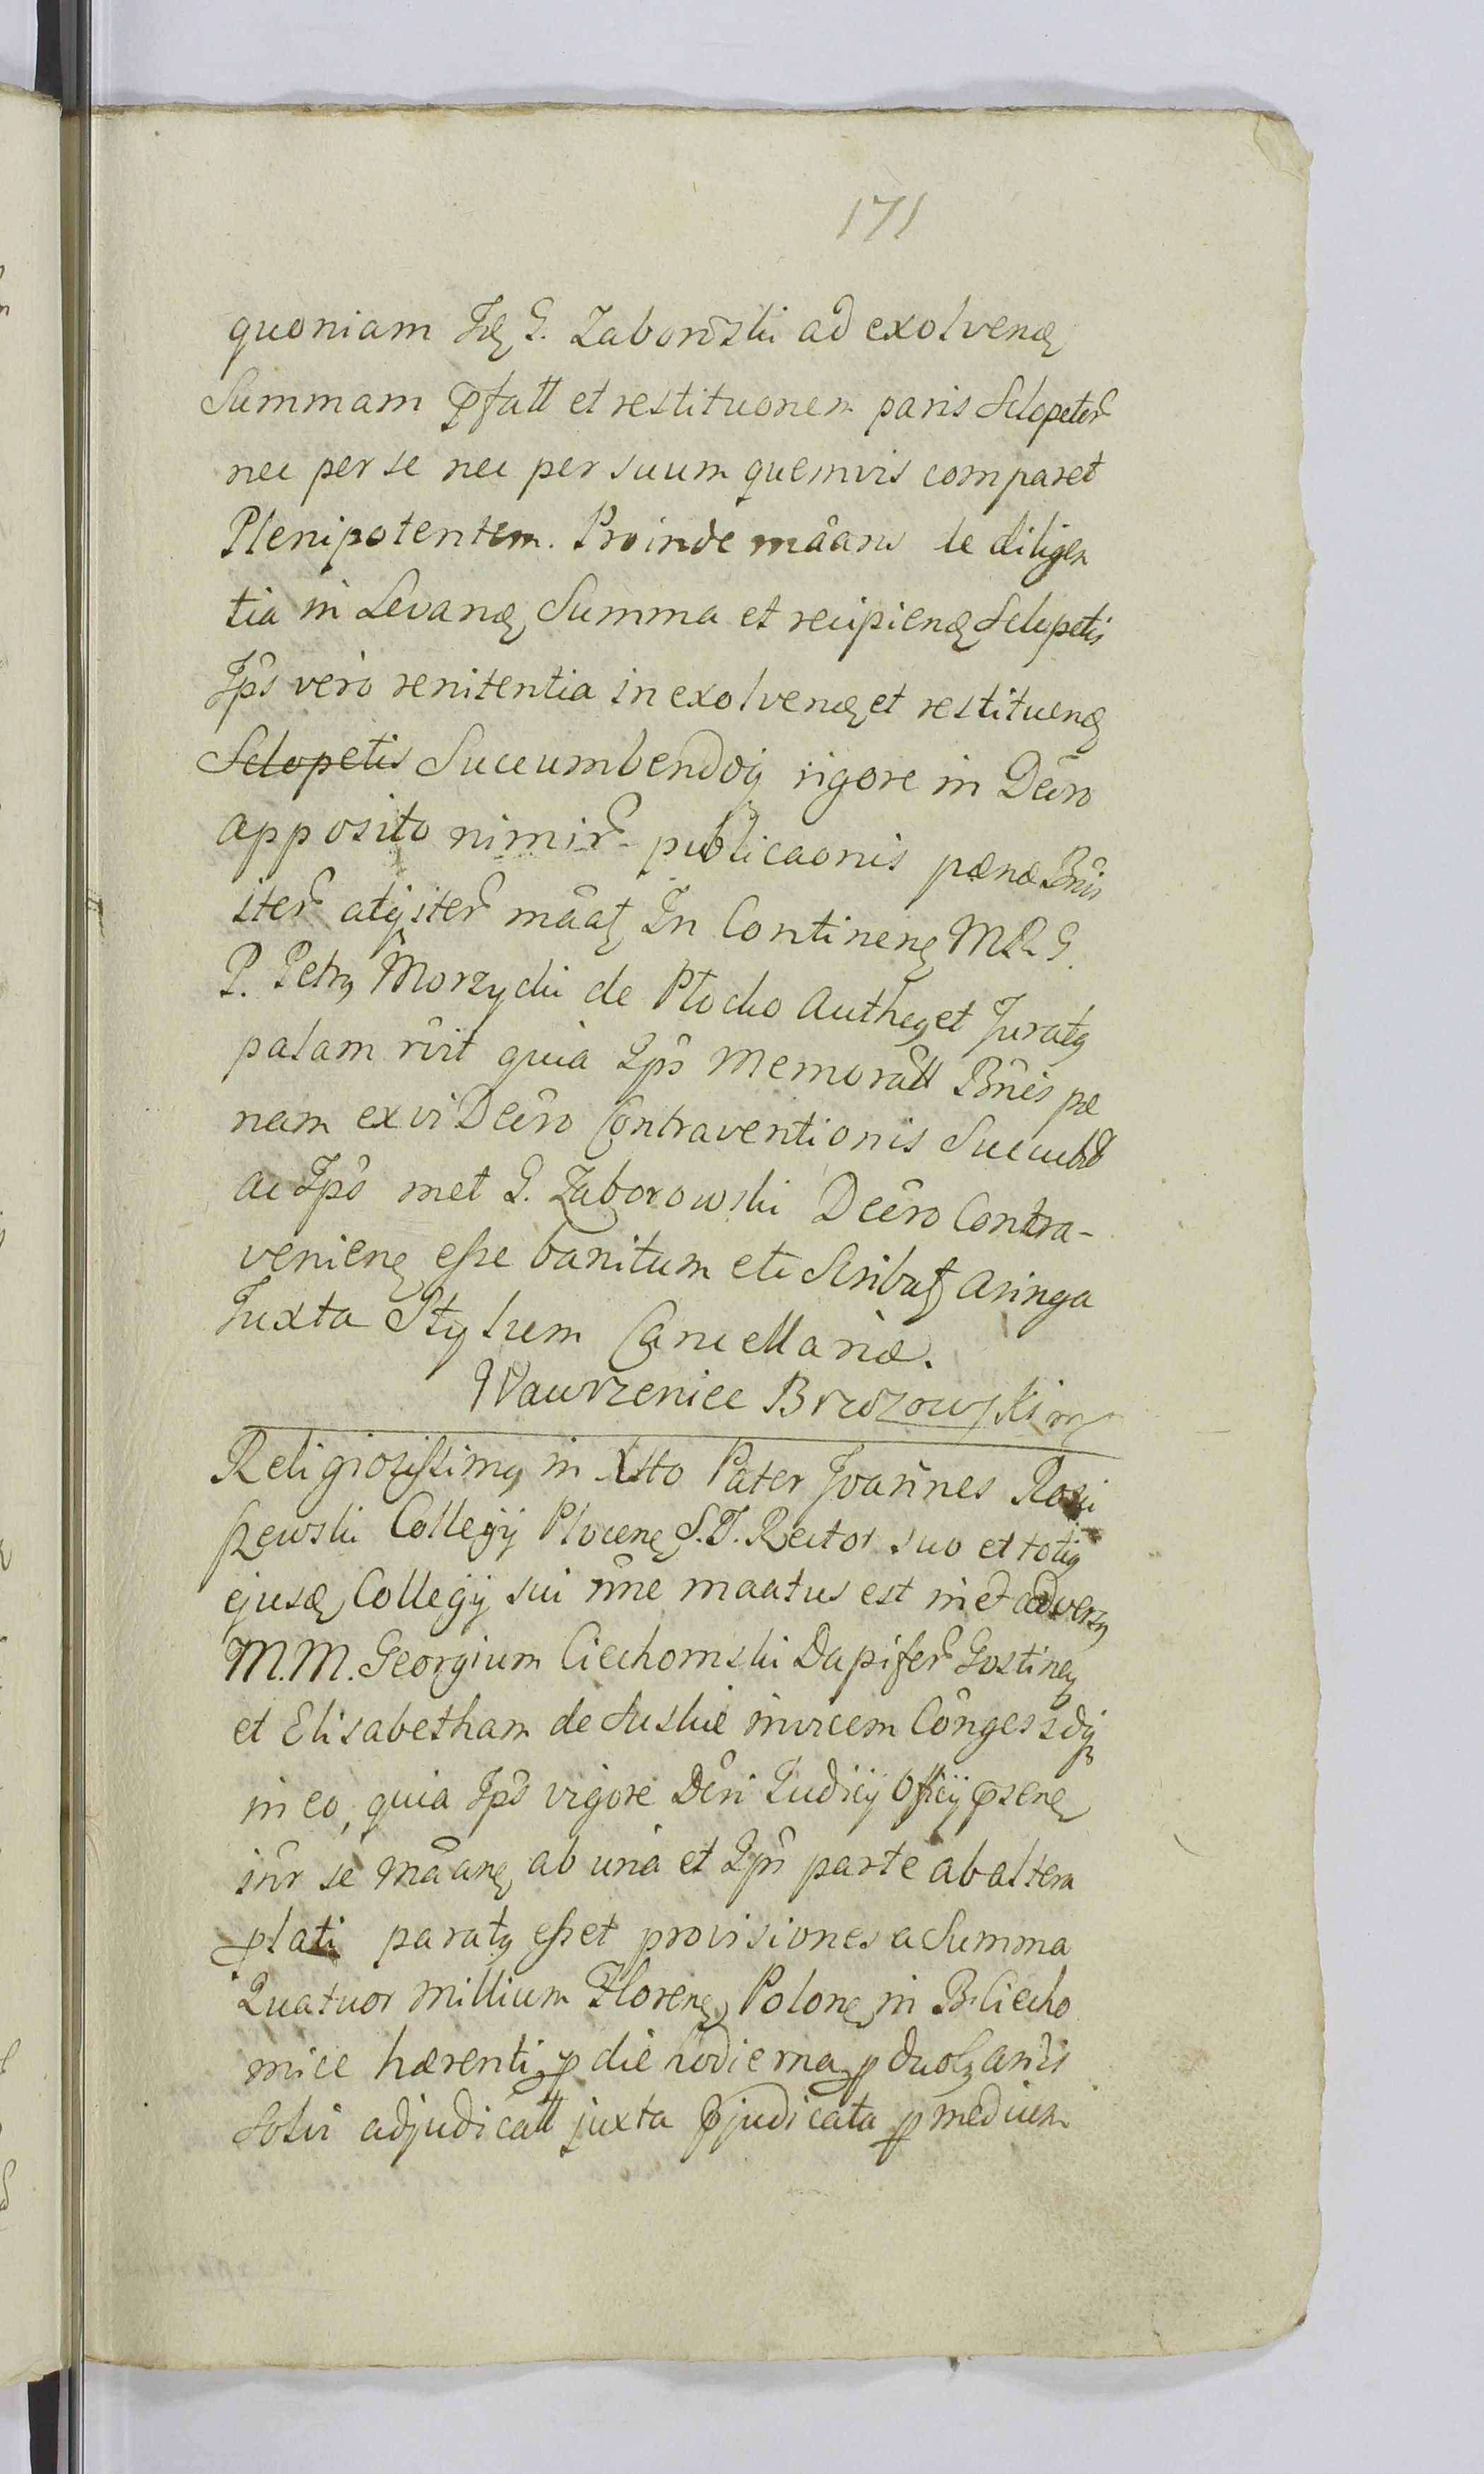 171
quoniam Idē G. Zaborowski ad exolvenđ
Summam pfatt et restituonem paris Sclopetor̃
nec per se nec per suum quemvis comparet
Plenipotentem. Proinde mâans se diligen
tia in Levanđ Summa et recipienđ Sclopetis
Ips̃ verò renitentia in exolvenđ et restituenđ
Sclopetis Succumbendoq̨ rigore in Decro
apposito nimir̃ publicaonis pænæ Bnis
iter̃ atq̨ iter̃ mâat, In Continenę M. R. G.
P. Petrq̨ Morzycki de Plocko Authen et Juratq̨
palam rĩit quia Ips̃ Memoratt Bñis pæ
nam ex vi Decro Contraventionis Succub
ac Ips̃ met G. Zaborowski Decro Contra-
venienę eſse banitum etc Scribat, Aringa
Juxta Stylum Cancellariæ.
Wawrzeniec Brzozowski mp
Religiosiſsimq̨ in Xsto Pater Joannes Rosci
szewski Collegij Plocenę S. J. Rector suo et totiq̨
ejusđ Collegij sui nñe maatus est in et adversq̨
M. M. Georgium Ciechomski Dapifer̃ Gostinę
et Elisabetham de Suskie invicem Cônges sdq̨
in eo, quia Ips̃ vigore Decri Judicij Officij psenę
inr̃ se mâanę ab una et Ips̃ parte ab altera
plati paratq̨ eſset provisiones a Summa
Quatuor millium Florenę Polonę in B. Ciecho
mice hærenti p die hodierna p duolq̨ annis
Solvi adjudicatt juxta pjudicata p medium